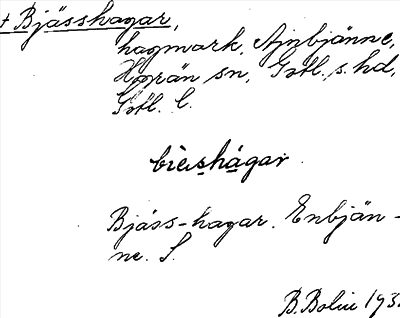 + Bjässhagar,
hagmark, Ajnbjänne,
Hogrän sn, Gotl. s. hd,
Gotl. l.
bìeshágar
Bjäss-hagar. Enbjän-
ne. S.
B. Bolin 193